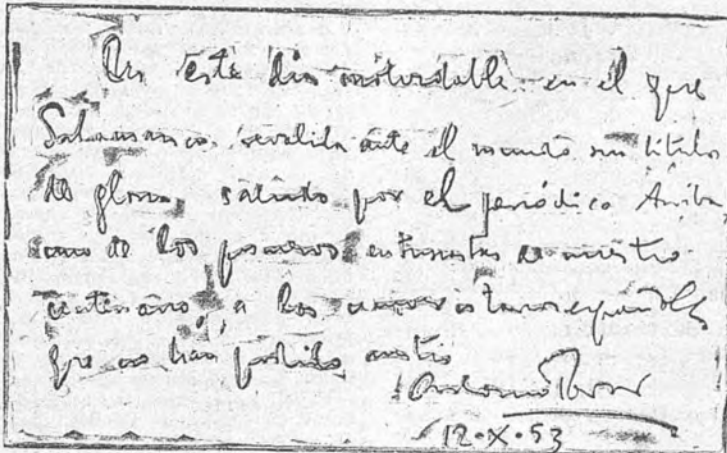 En este día inolvidable en el que
Salamanca revalida ante el mundo sus títulos
de gloria, saludo por el periódico Arriba
uno de los primeros entusiastas de nuestro
centenario, a los universitarios españoles
que no han podido asistir
Antonio Tovar
12·X·53